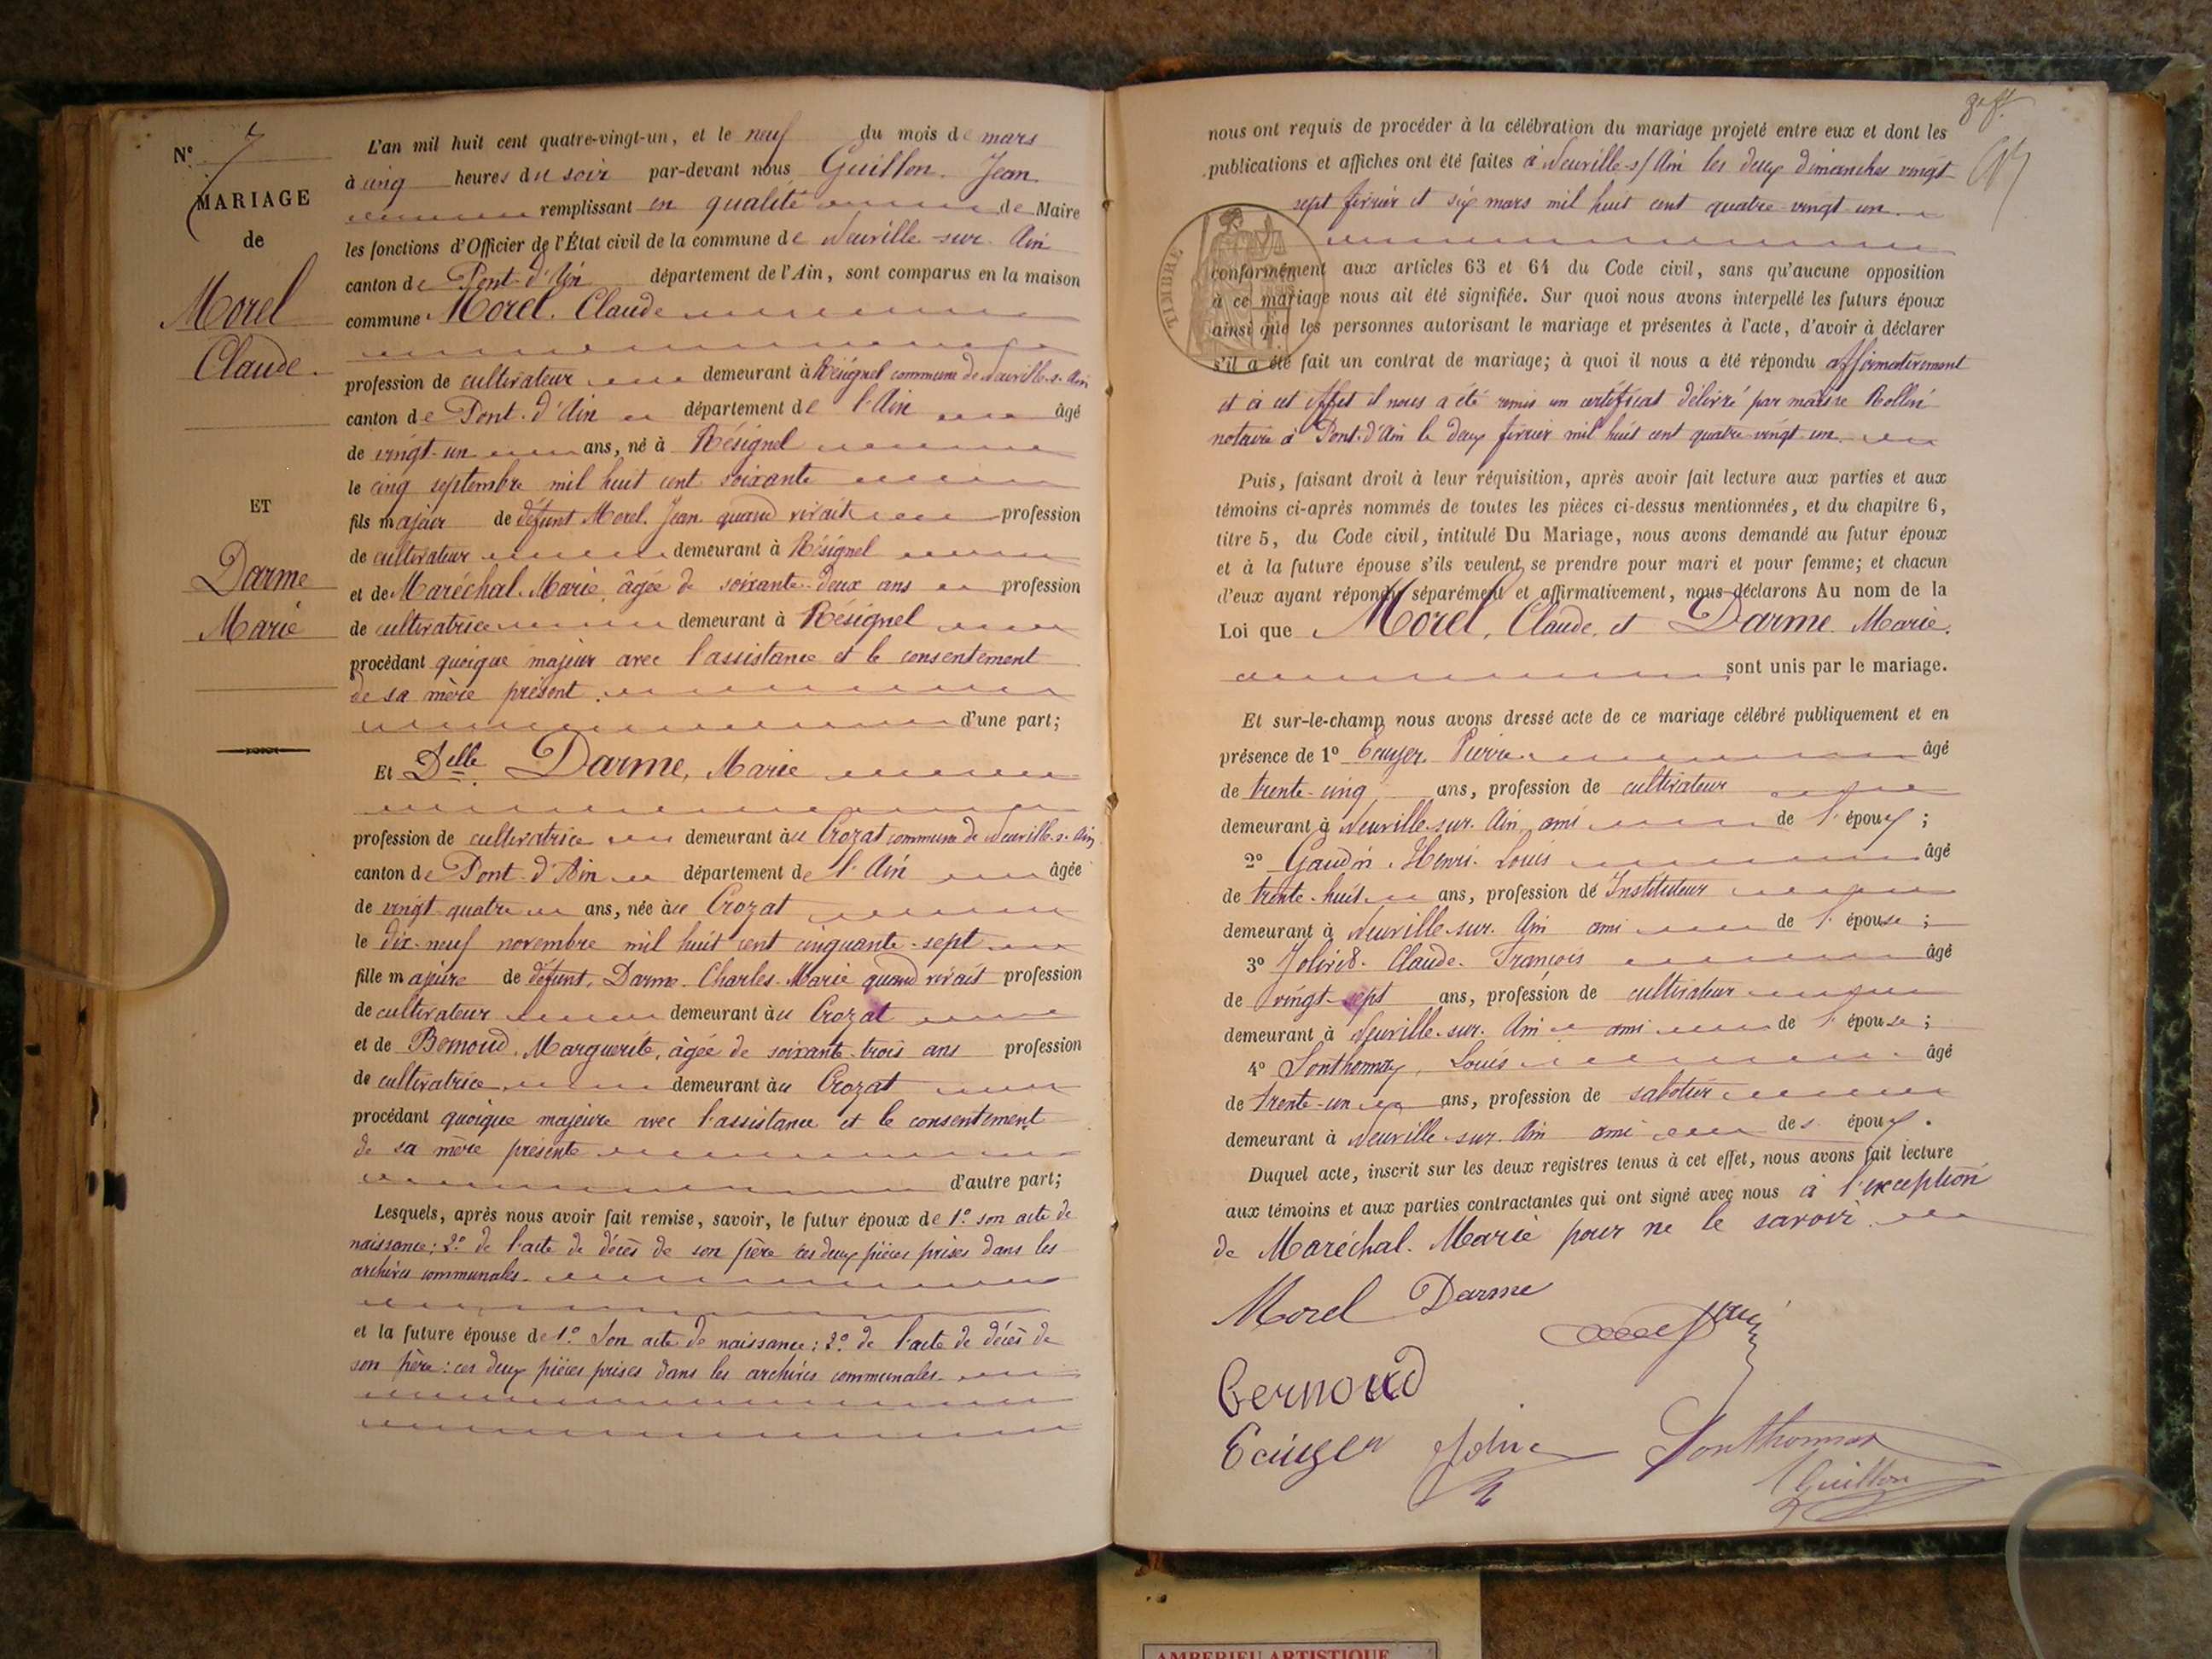 N° 7
MARIAGE
de
Morel
Claude.
ET
Darme
Marie
L'an mil huit cent quatre-vingt-un, et le neuf du mois de mars
à cinq heures du soir par-devant nous Guillon. Jean
remplissant en qualité de Maire
les fonctions d'Officier de l'État civil de la commune de Neuville-sur-Ain
canton de Pont-d'Ain département de l'Ain, sont comparus en la maison
commune Morel. Claude
profession de cultivateur demeurant à Résignel commune de Neuville-s-Ain
canton de Pont-d'Ain département de l'Ain âgé
de vingt-un ans, né à Résignel
le cinq septembre mil huit cent soixante
fils majeur de défunt Morel. Jean quand vivait profession
de cultivateur demeurant à Résignel
et de Maréchal. Marie, âgée de soixante-deux ans profession
de cultivatrice demeurant à Résignel
procédant quoique majeur avec l'assistance et le consentement
de sa mère présent.
d'une part;
Et Delle Darme, Marie
profession de cultivatrice demeurant au Crozat commune de Neuville-s-Ain
canton de Pont-d'Ain département de l'Ain âgée
de vingt-quatre ans, née au Crozat
le dix-neuf novembre mil huit cent cinquante-sept
fille majeure de défunt, Darme. Charles-Marie quand vivait profession
de cultivateur demeurant au Crozat
et de Bernoud. Marguerite, âgée de soixante-trois ans profession
de cultivatrice demeurant au Crozat
procédant quoique majeure avec l'assistance et le consentement
de sa mère présente
d'autre part;
Lesquels, après nous avoir fait remise, savoir, le futur époux de 1° son acte de
naissance; 2° de l'acte de décès de son père ces deux pièces prises dans les
archives communales.
et la future épouse de 1° Son acte de naissance; 2° de l'acte de décès de
son père: ces deux pièces prises dans les archives communales.
nous ont requis de procéder à la célébration du mariage projeté entre eux et dont les
publications et affiches ont été faites à Neuville-s/Ain les deux dimanches vingt
sept février et six mars mil huit cent quatre-vingt-un
TIMBRE
conformément aux articles 63 et 64 du Code civil, sans qu'aucune opposition
à ce mariage nous ait été signifiée. Sur quoi nous avons interpellé les futurs époux
ainsi que les personnes autorisant le mariage et présentes à l'acte, d'avoir à déclarer
s'il a été fait un contrat de mariage; à quoi il nous a été répondu affirmativement
et à cet effet il nous a été remis un certificat délivré par maître Rollin
notaire à Pont-d'Ain le deux février mil huit cent quatre-vingt-un.
Puis, faisant droit à leur réquisition, après avoir fait lecture aux parties et aux
témoins ci-après nommés de toutes les pièces ci-dessus mentionnées, et du chapitre 6,
titre 5, du Code civil, intitulé Du Mariage, nous avons demandé au futur époux
et à la future épouse s'ils veulent se prendre pour mari et pour femme; et chacun
d'eux ayant répondu séparément et affirmativement, nous déclarons Au nom de la
Loi que Morel, Claude, et Darme. Marie.
sont unis par le mariage.
Et sur-le-champ nous avons dressé acte de ce mariage célébré publiquement et en
présence de 1° Pierre âgé
de trente-cinq ans, profession de cultivateur
demeurant à Neuville-sur-Ain ami de l'époux;
2° Gaudin. Henri-Louis âgé
de trente-huit ans, profession de Instituteur
demeurant à Neuville-sur-Ain ami de l'épouse;
3° Claude-François âgé
de vingt-sept ans, profession de cultivateur
demeurant à Neuville-sur-Ain ami de l'épouse;
4° Sonthonnax, Louis âgé
de trente-un ans, profession de sabotier
demeurant à Neuville-sur-Ain ami des époux.
Duquel acte, inscrit sur les deux registres tenus à cet effet, nous avons fait lecture
aux témoins et aux parties contractantes qui ont signé avec nous à l'exception
de Maréchal. Marie pour ne le savoir.
Morel Darme
Bernoud
Sonthonnax
Guillon
AMBERIEU ARTISTIQUE